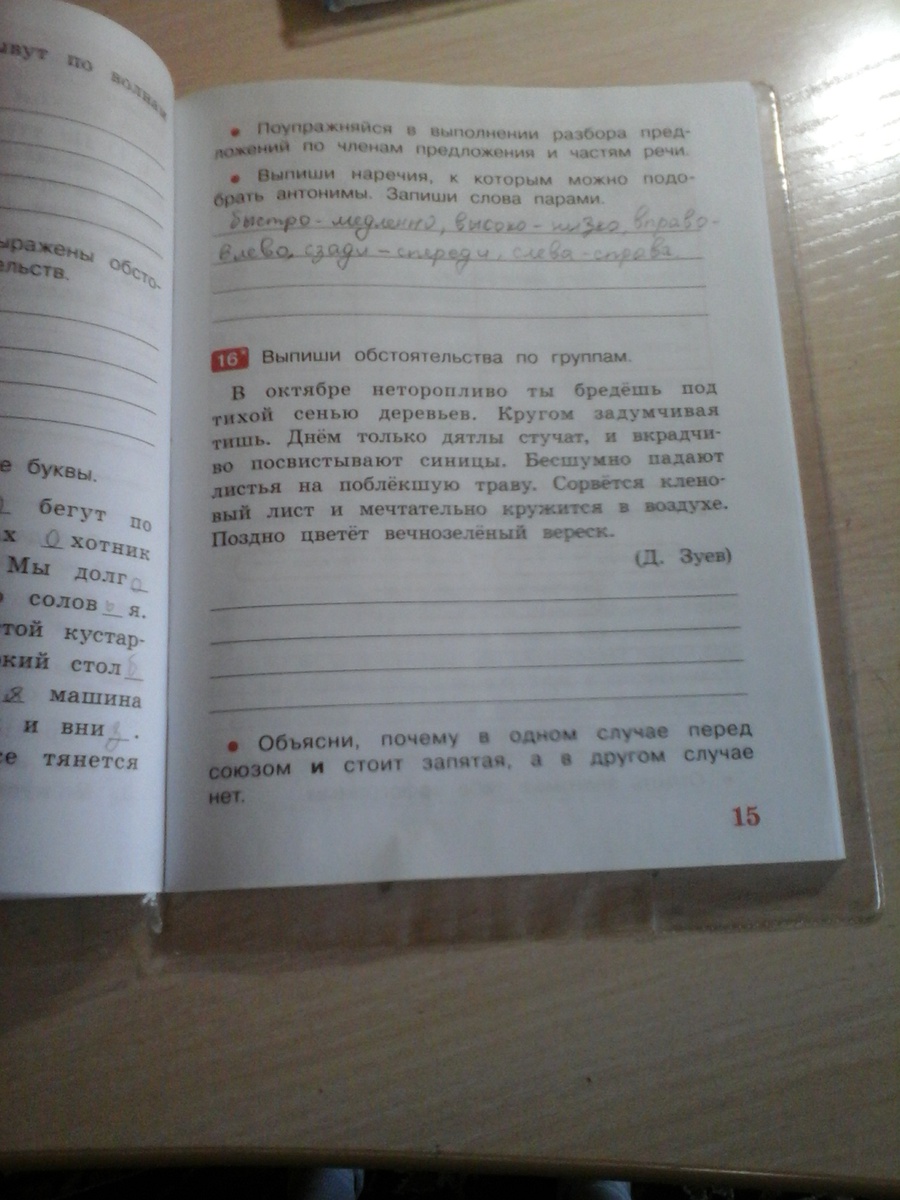 ывут по волнам
ыражены обсто-
ельств.
е буквы.
бегут по
х о хотник
Мы долго
солов ь я.
той кустар-
кий стол б
я машина
и вни з .
се тянется
• Поупражняйся в выполнении разбора пред-
ложений по членам предложения и частям речи.
• Выпиши наречия, к которым можно подо-
брать антонимы. Запиши слова парами.
быстро - медленно, высоко - низко, вправо -
влево, сзади - спереди, слева - справа.
16* Выпиши обстоятельства по группам.
В октябре неторопливо ты бредёшь под
тихой сенью деревьев. Кругом задумчивая
тишь. Днём только дятлы стучат, и вкрадчи-
во посвистывают синицы. Бесшумно падают
листья на поблёкшую траву. Сорвётся клено-
вый лист и мечтательно кружится в воздухе.
Поздно цветёт вечнозелёный вереск.
(Д. Зуев)
• Объясни, почему в одном случае перед
союзом и стоит запятая, а в другом случае
нет.
15